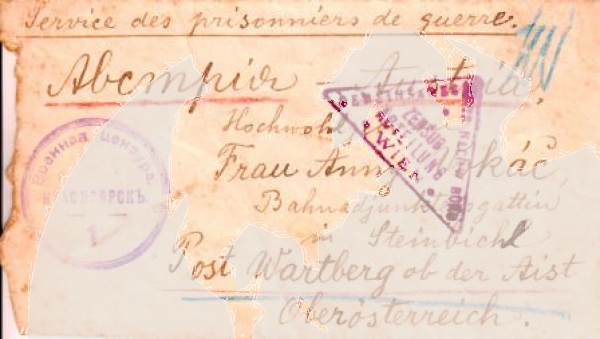 Service des prisonniers de guerre.
Австрія – Austria,
Hochwohl
Frau Anny
Bahnadjunktensgattin
in Steinbichl
Post Wartberg ob der Aist
Oberösterreich.
Военная цензура.
КРАСНОЯРСКЪ
ZENSUR
ABTEILUNG
WIEN